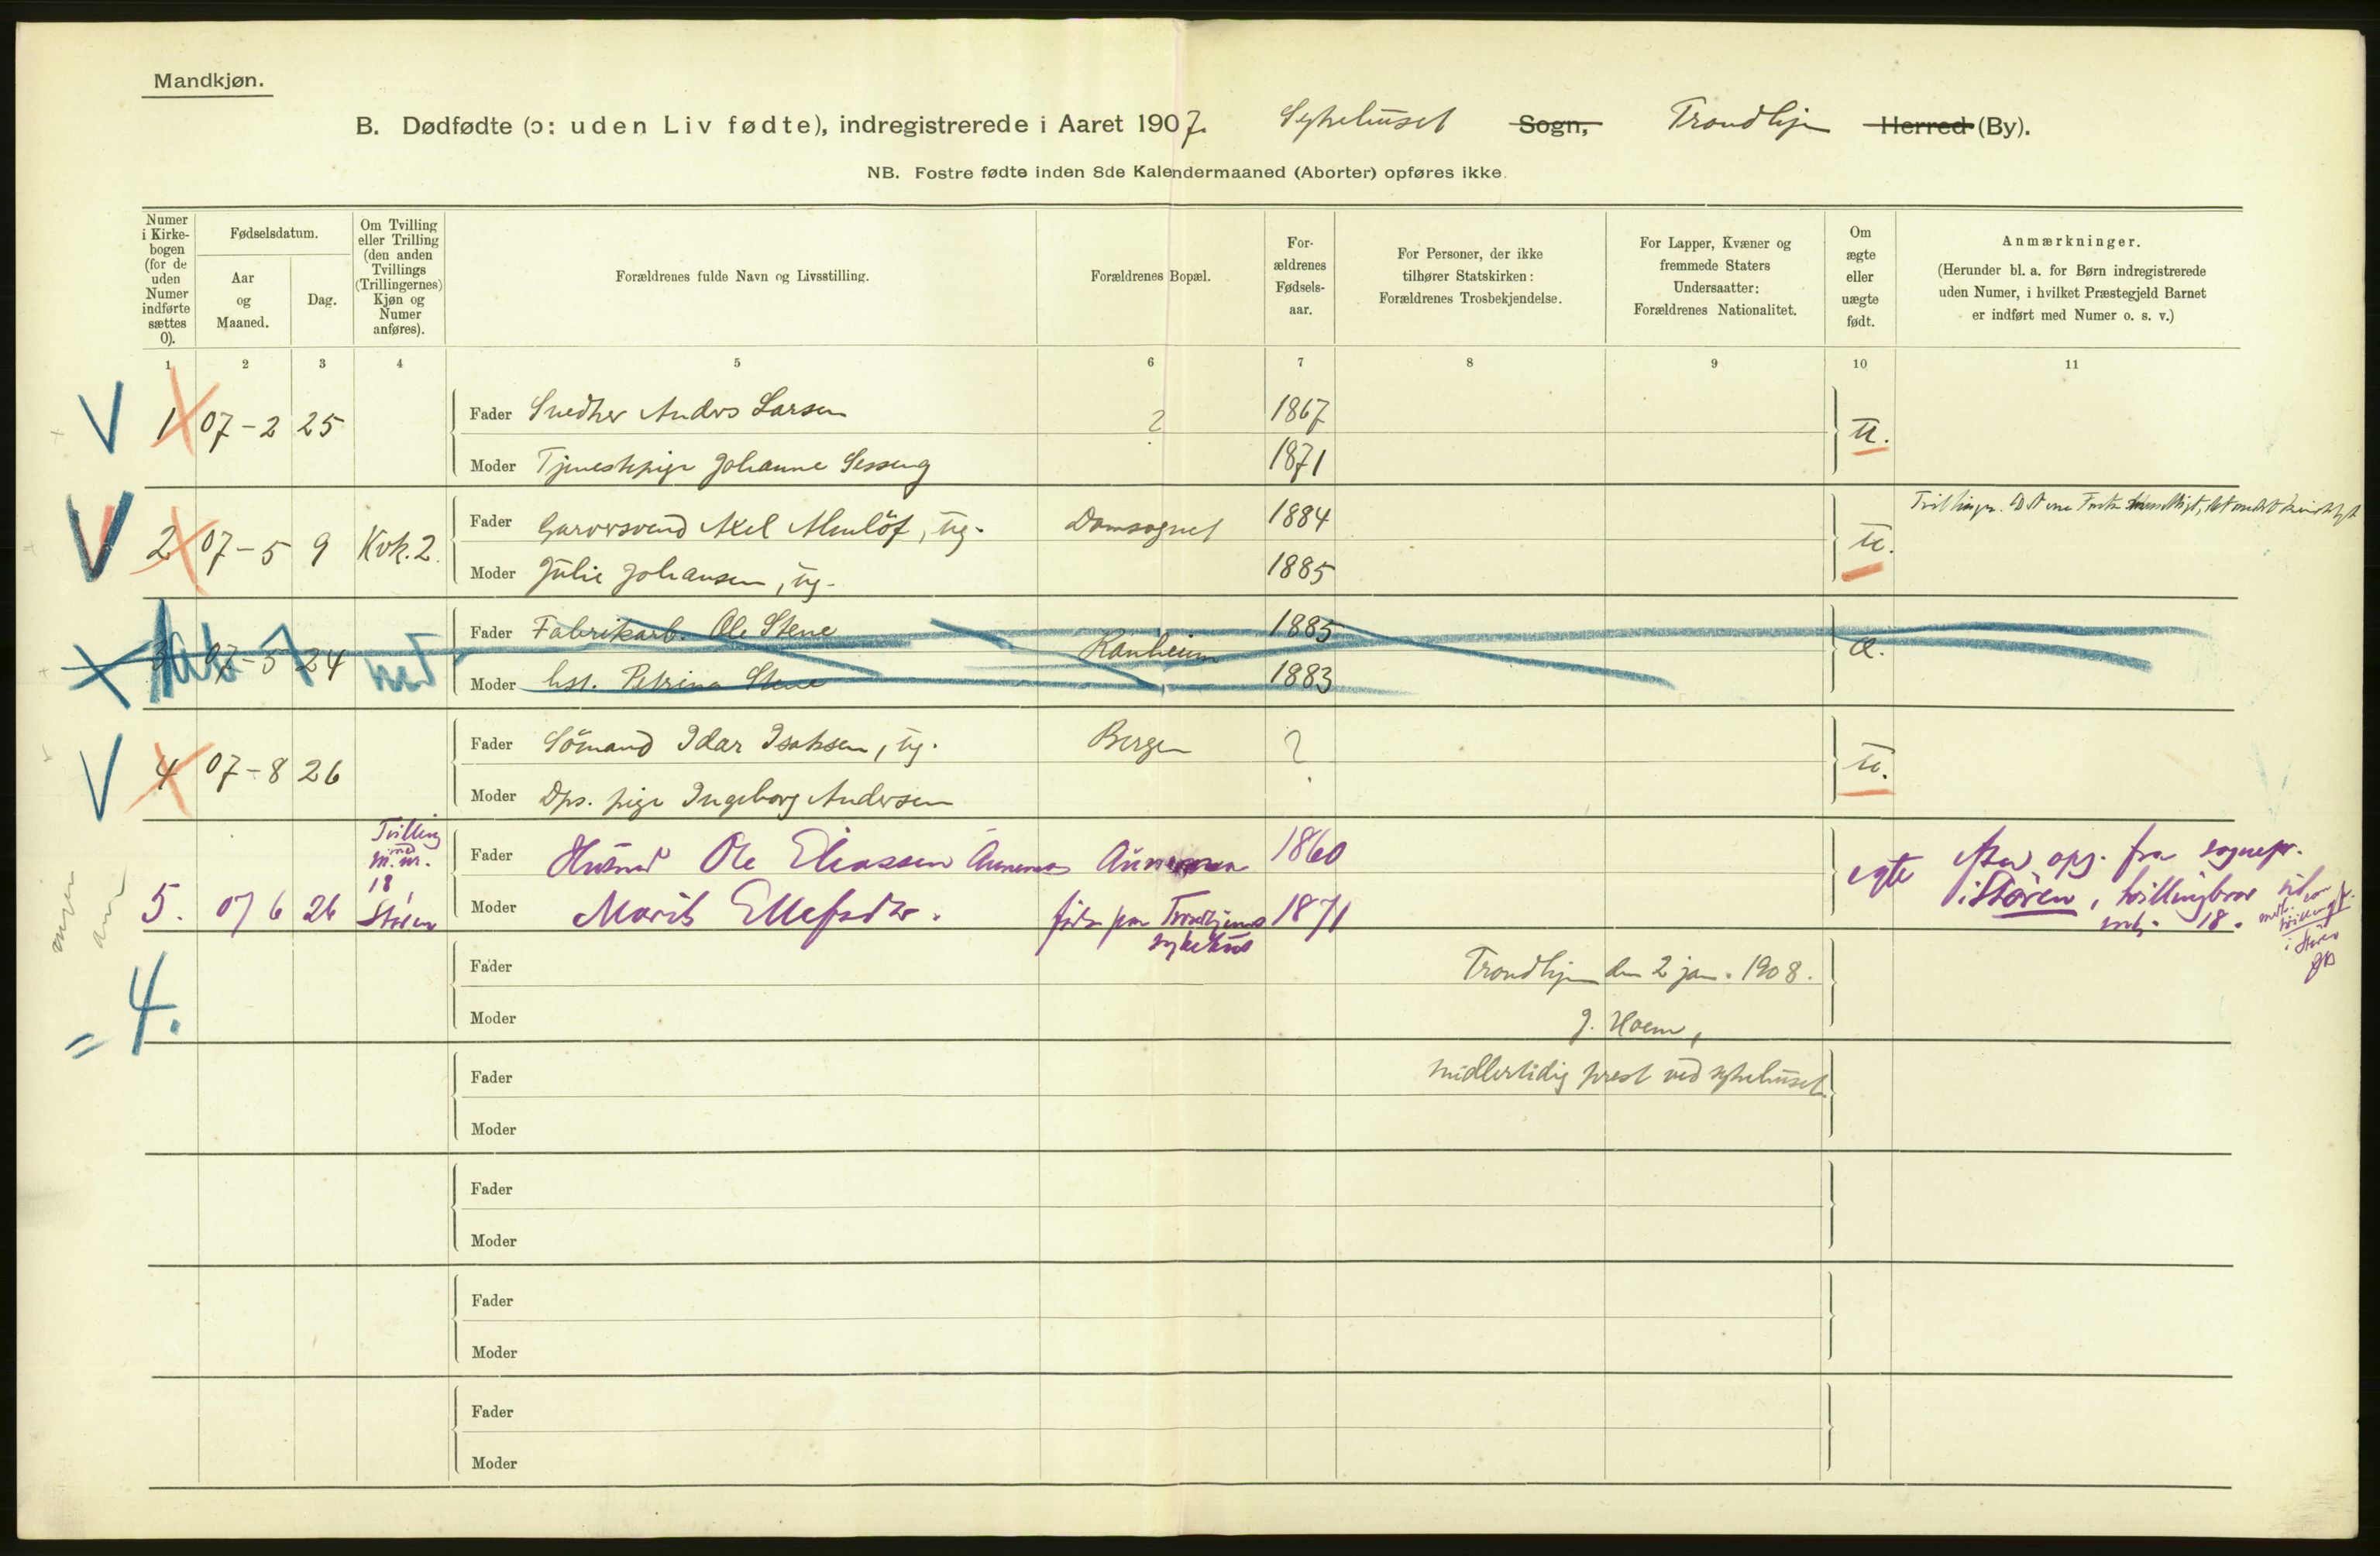 Mandkjøn.
B. Dødfødte (ɔ: uden Liv fødte), indregistrerede i Aaret 1907. Sykehuset Sogn, Trondhjem Herred (By).
NB. Fostre fødte inden 8de Kalendermaaned (Aborter) opføres ikke.
Numer i Kirke-bogen (for de uden Numer indførte sættes 0).
Fødselsdatum.
Aar og Maaned.
Dag.
Om Tvilling eller Trilling (den anden Tvillings (Trillingernes) Kjøn og Numer anføres).
Forældrenes fulde Navn og Livsstilling.
Forældrenes Bopæl.
For-ældrenes Fødsels-aar.
For Personer, der ikke tilhører Statskirken: Forældrenes Trosbekjendelse.
For Lapper, Kvæner og fremmede Staters Undersaatter: Forældrenes Nationalitet.
Om ægte eller uægte født.
Anmærkninger.
(Herunder bl. a. for Børn indregistrerede uden Numer, i hvilket Præstegjeld Barnet er indført med Numer o. s. v.)
1 2 3 4 5 6 7 8 9 10 11
1 07-2 25 Fader Snedker Anders Larsen ? 1867 u.
Moder Tjenestepige Johanne Sesseng 1871
2 07-5 9 Kvk. 2. Fader Garversvend Axel Almlöf, ug. Domsognet 1884 u.
Moder Julie Johansen, ug. 1885
3 07-5 24 Fader Fabrikarb. Ole Stene Ranheim 1885 æ.
Moder hst. Petrina Stene 1883
4 07-8 26 Fader Sömand Idar Isaksen, ug. Bergen ? u.
Moder Dps. pige Ingeborg Andersen
5. 07 6 26 Tvilling med m. nr. 18, Støren Fader Husmd Ole Eliassen 1860 egte
Moder Marit Ellefsdtr. født paa Trondhjems sykehus 1871
Efter opg. fra sognepr. i Støren, tvillingbror 18.
Fader Trondhjem den 2 jan. 1908.
Moder J. Hoem,
= 4.
Fader midlertidig prest ved sykehuset.
Moder
Fader
Moder
Fader
Moder
Fader
Moder